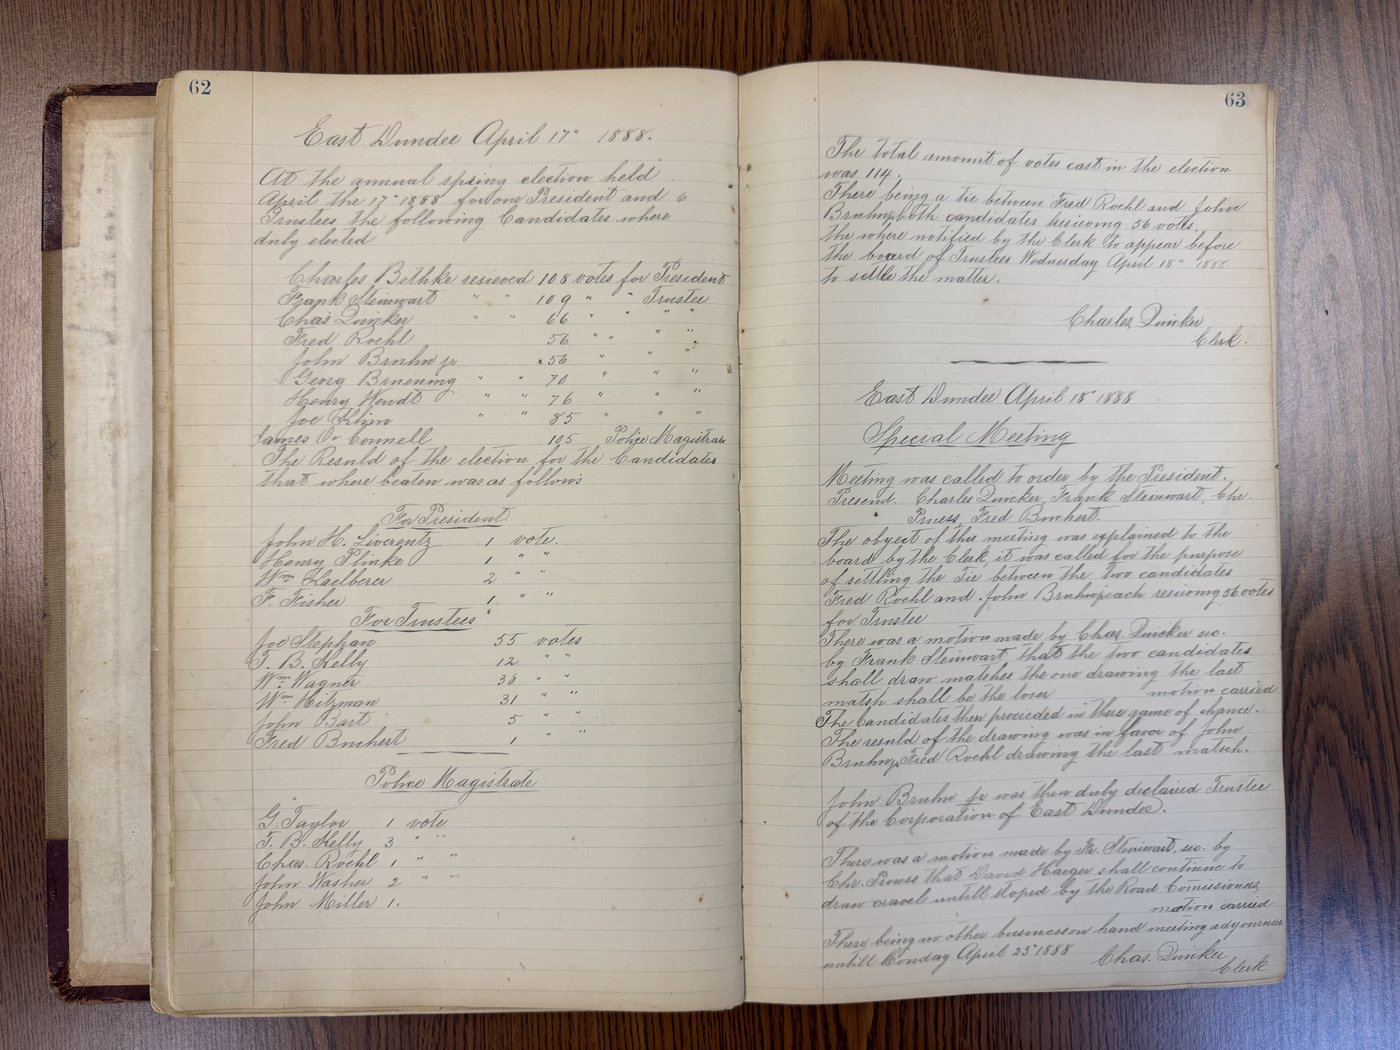 62
East Dundee April 17" 1888.
At the annual spring election held
April the 17" 1888 for one President and 6
Trustees the following Candidates where
duly elected
Charles Bethke resieved 108 votes for President
Frank Steinwart " " 109 " " Trustee
Chas Dunker " " 66 " " " "
Fred Roehl 56 " " " "
John Bruhn jr 56 " " "
Georg Bruening " " 70 " " "
Henry Wendt " " 76 " " "
Joe Klim " " 85 " " "
James O' Connell 105 Police Magistrate
The Resuld of the election for the Candidates
that where beaten was as follows
For President
John H. Liverentz 1 vote.
Henry Plinke 1 " "
Wm Haelberer 2 " "
F. Fisher 1 " "
For Trustees
Joe Stephan 55 votes
T. B. Kelly 12 " "
Wm Wagner 38 " "
Wm Hitzman 31 " "
John Bart 5 " "
Fred Buchert 1 " "
Police Magistrate
G. Taylor 1 vote
T. B. Kelly 3 " "
Chas. Roehl 1 " "
John Washer 2 " "
John Miller 1.
63
The total amount of votes cast in the election
was 114.
There being a tie between Fred Roehl and John
Bruhn jr both candidates resieving 56 votes.
the where notified by the Clerk to appear before
the board of Trustees Wednesday April 18" 1888.
to settle the matter.
Charles Dunker
Clerk.
East Dundee April 18" 1888
Special Meeting
Meeting was called to order by the President.
Presend. Charles Dunker, Frank Steinwart, Chr.
Pruess, Fred Buchert.
The obyect of this meeting was explained to the
board by the Clerk, it was called for the purpose
of settling the Tie between the two candidates
Fred Roehl and John Bruhn jr each resieving 56 votes
for Trustee
There was a motion made by Chas. Duncker sec.
by Frank Steinwart that the two candidates
shall draw matches the one drawing the last
matsh shall be the loser motion carried
The Candidates then proceeded in there game of chance.
The resuld of the drawing was in favor of John
Bruhn jr, Fred Roehl drawing the last matsch.
John Bruhn jr was then duly declaired Trustee
of the Corporation of East Dundee.
There was a motion made by Fr. Steinwart, sec. by
Chr. Pruess that David Haeger shall continue to
draw cravel untill stoped by the Road Comissioners,
motion carried
There being no other business on hand meeting adyourned
untill Monday April 23" 1888 Chas. Dunker
Clerk